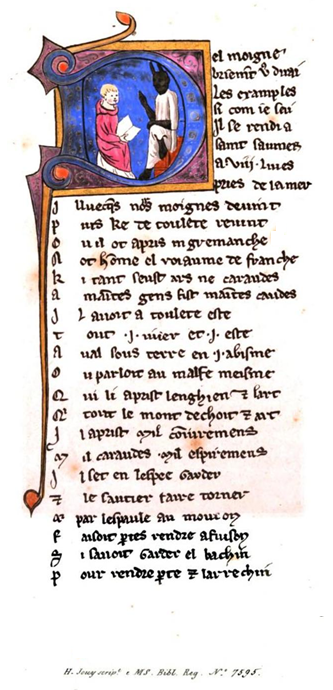 Del moigne
briemt̄ v̄ dirai
Les examples
si com ie sai
Il se rendi a
saint saumer
a .viii. liues
pries de la mer
Illueq̄s nōs moignes deuint
Puis ke de toulete reuint
Ou il ot apris nigremanche
Not hōme el roiaume de franche
ki tant seust ars ne caraudes
a maītes gens fist maītes caudes
Il auoit a toulete este
tout .i. iuier et .i. este
aual sous terre en .i. abisme
ou parloit au malfe meisme
Qui li aprist lenghien ⁊ lart
Q̄ tout le mont dechoit ⁊ art
Il aprist mil cōiuremens
mil caraudes mil espiremens
Il set en lespee garder
⁊ le sautier faire torner
⁊ par lespaule au mouton
faisoit ꝑtes rendre a fuison
Il sauoit garder el bachin
pour rendre ꝑte ⁊ larrechin
MS. Bibl. Reg. N.º 7595.